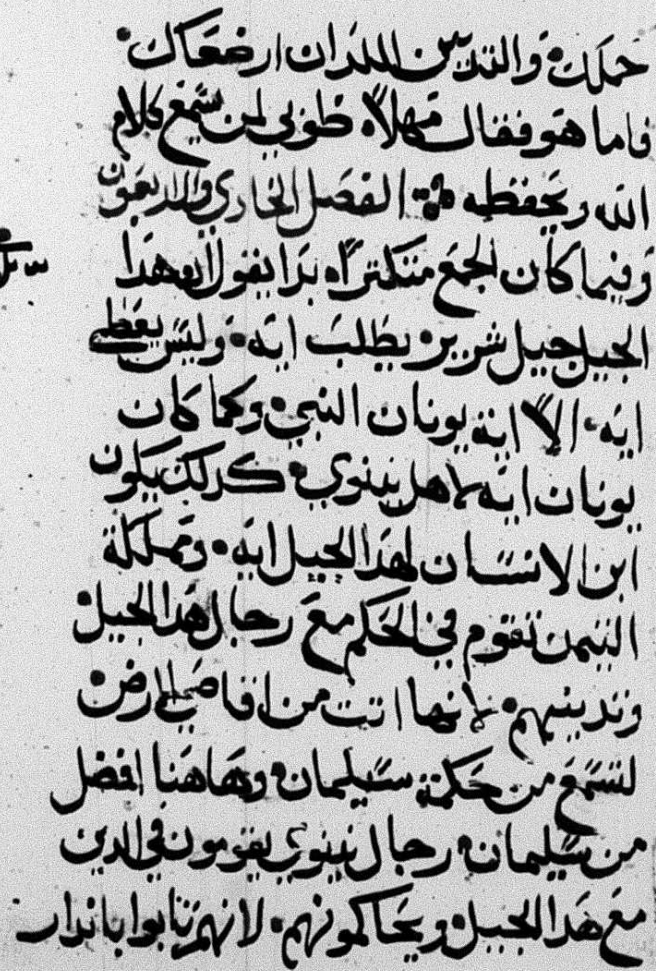 حملك والتديين اللدان ارضعاك
فاما هو فقال مهلاً طوبي لمن يسمع كلام
الله ويحفظه الفصل الحاري والاربعون
وفيما كان الجمع متكتراً بدا يقول ان هدا
الجيل جيل شرير يطلب ايه وليس يعطى
ايه الا اية يونان النبي وكما كان
يونان ايه لاهل نينوي كدلك يكون
ابن الانسان لهدا الجيل ايه ومملكة
التيمن تقوم في الحكم مع رجال هدا الجيل
وتدينهم لانها اتت من اقاصي الارض
لتسمع من حكمة سليمان وهاهنا افضل
من سليمان رجال نينوي يقومون في الدين
مع هدا الجيل ويحاكمونهم لانهم تابوا باندار